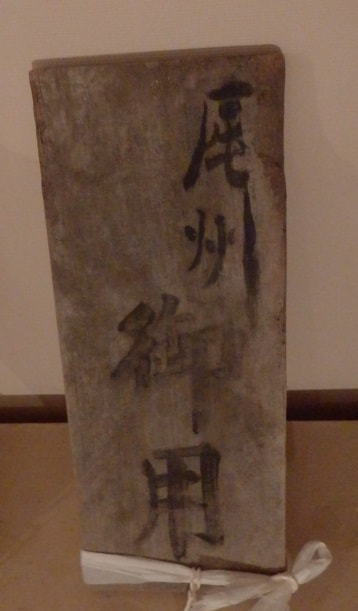 尾州
御用